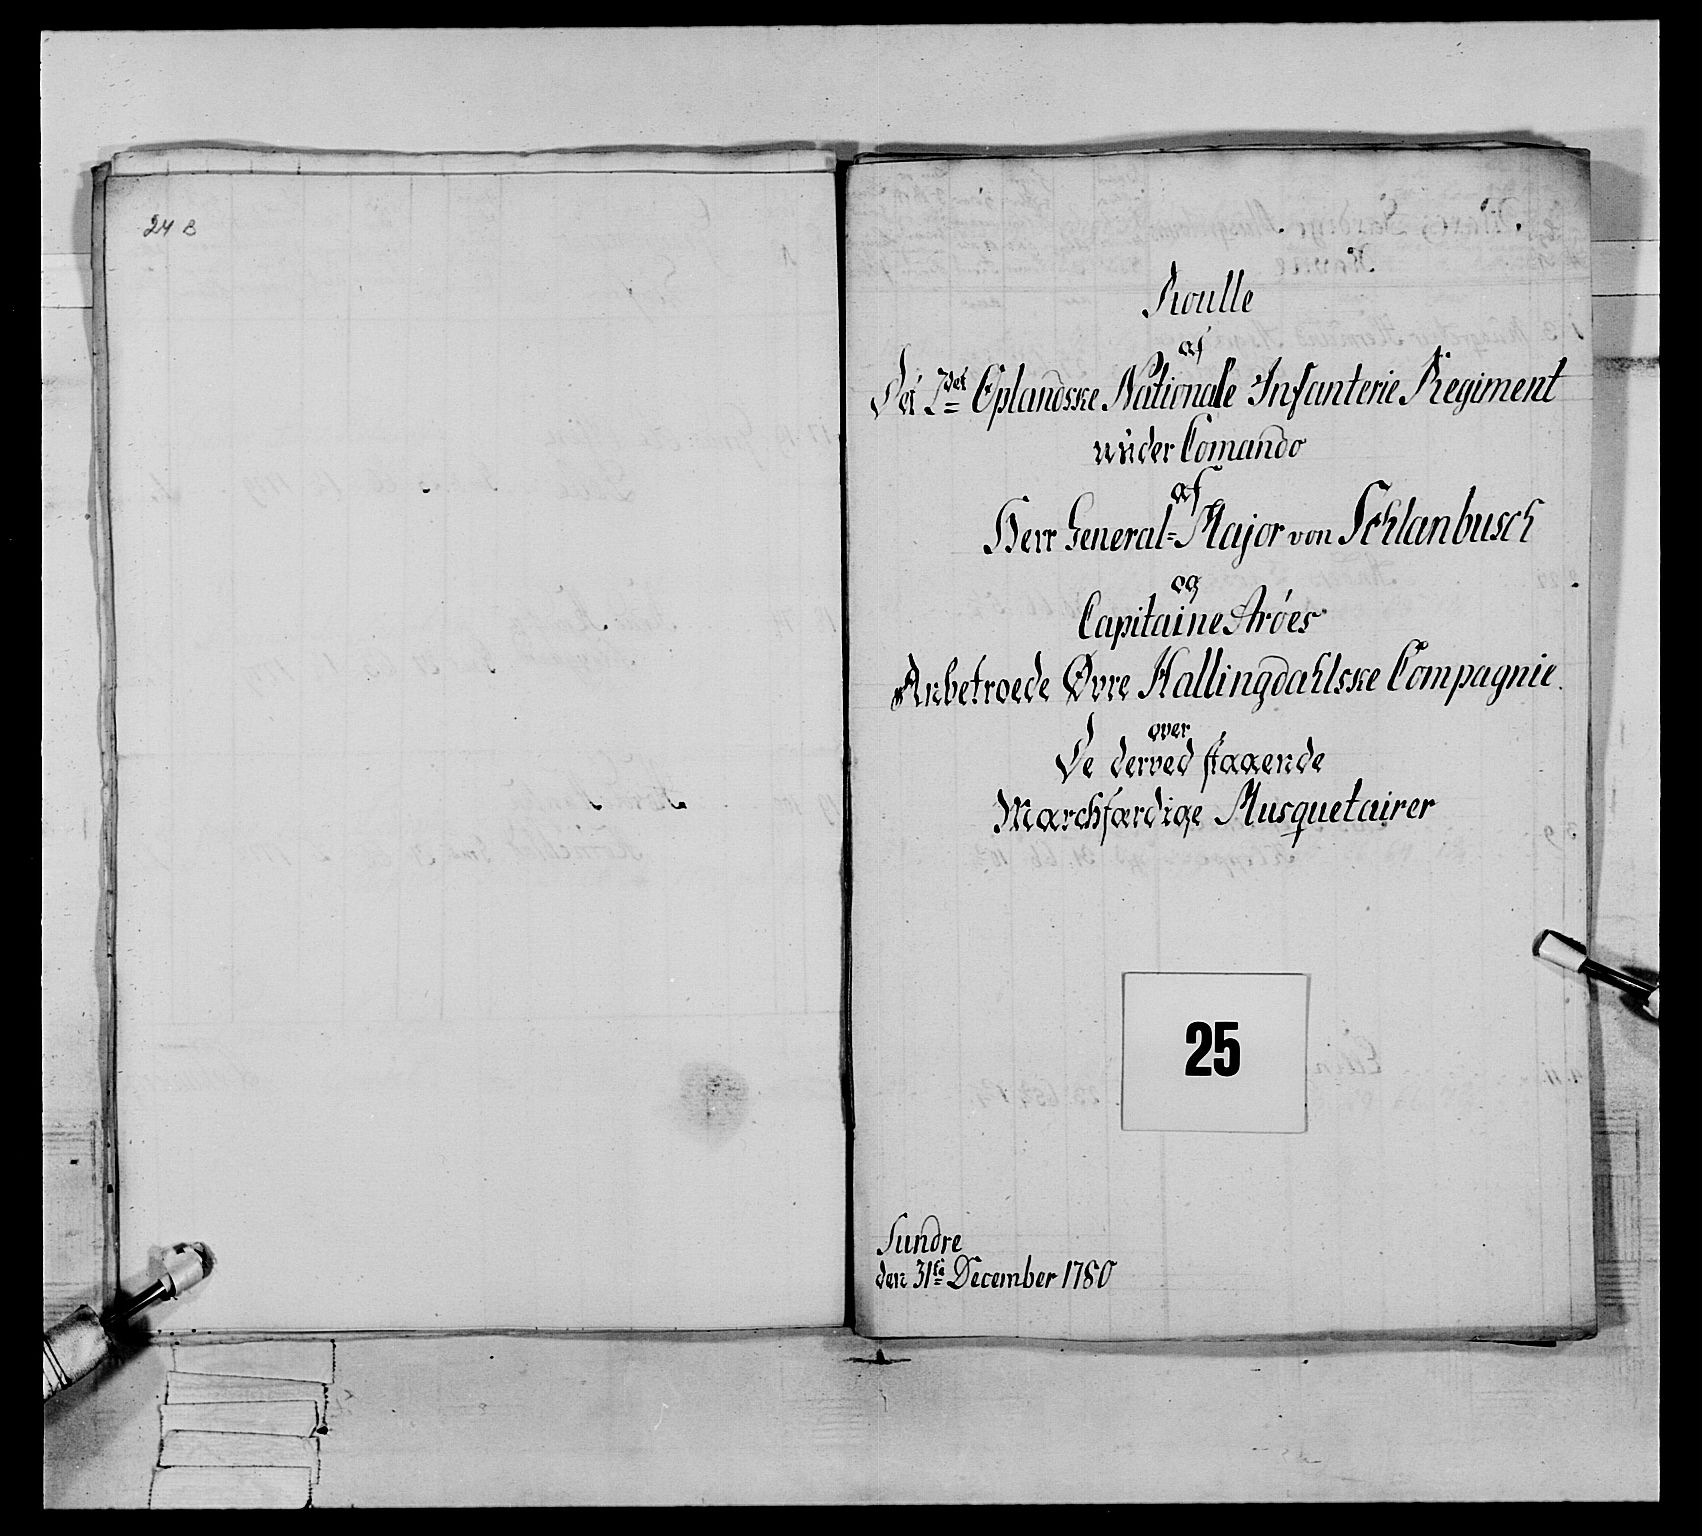 24 B
Roulle
af
Det 2det Oplandske Nationale Infanterie Regiment
under Comando
af
Herr General=Major von Schlanbusch
og
Capitaine Aröes
Anbetroede Øvre Hallingdahlske Compagnie
over
De derved staaende
Marchfærdige Musquetairer
25
Sundre
den 31te December 1780